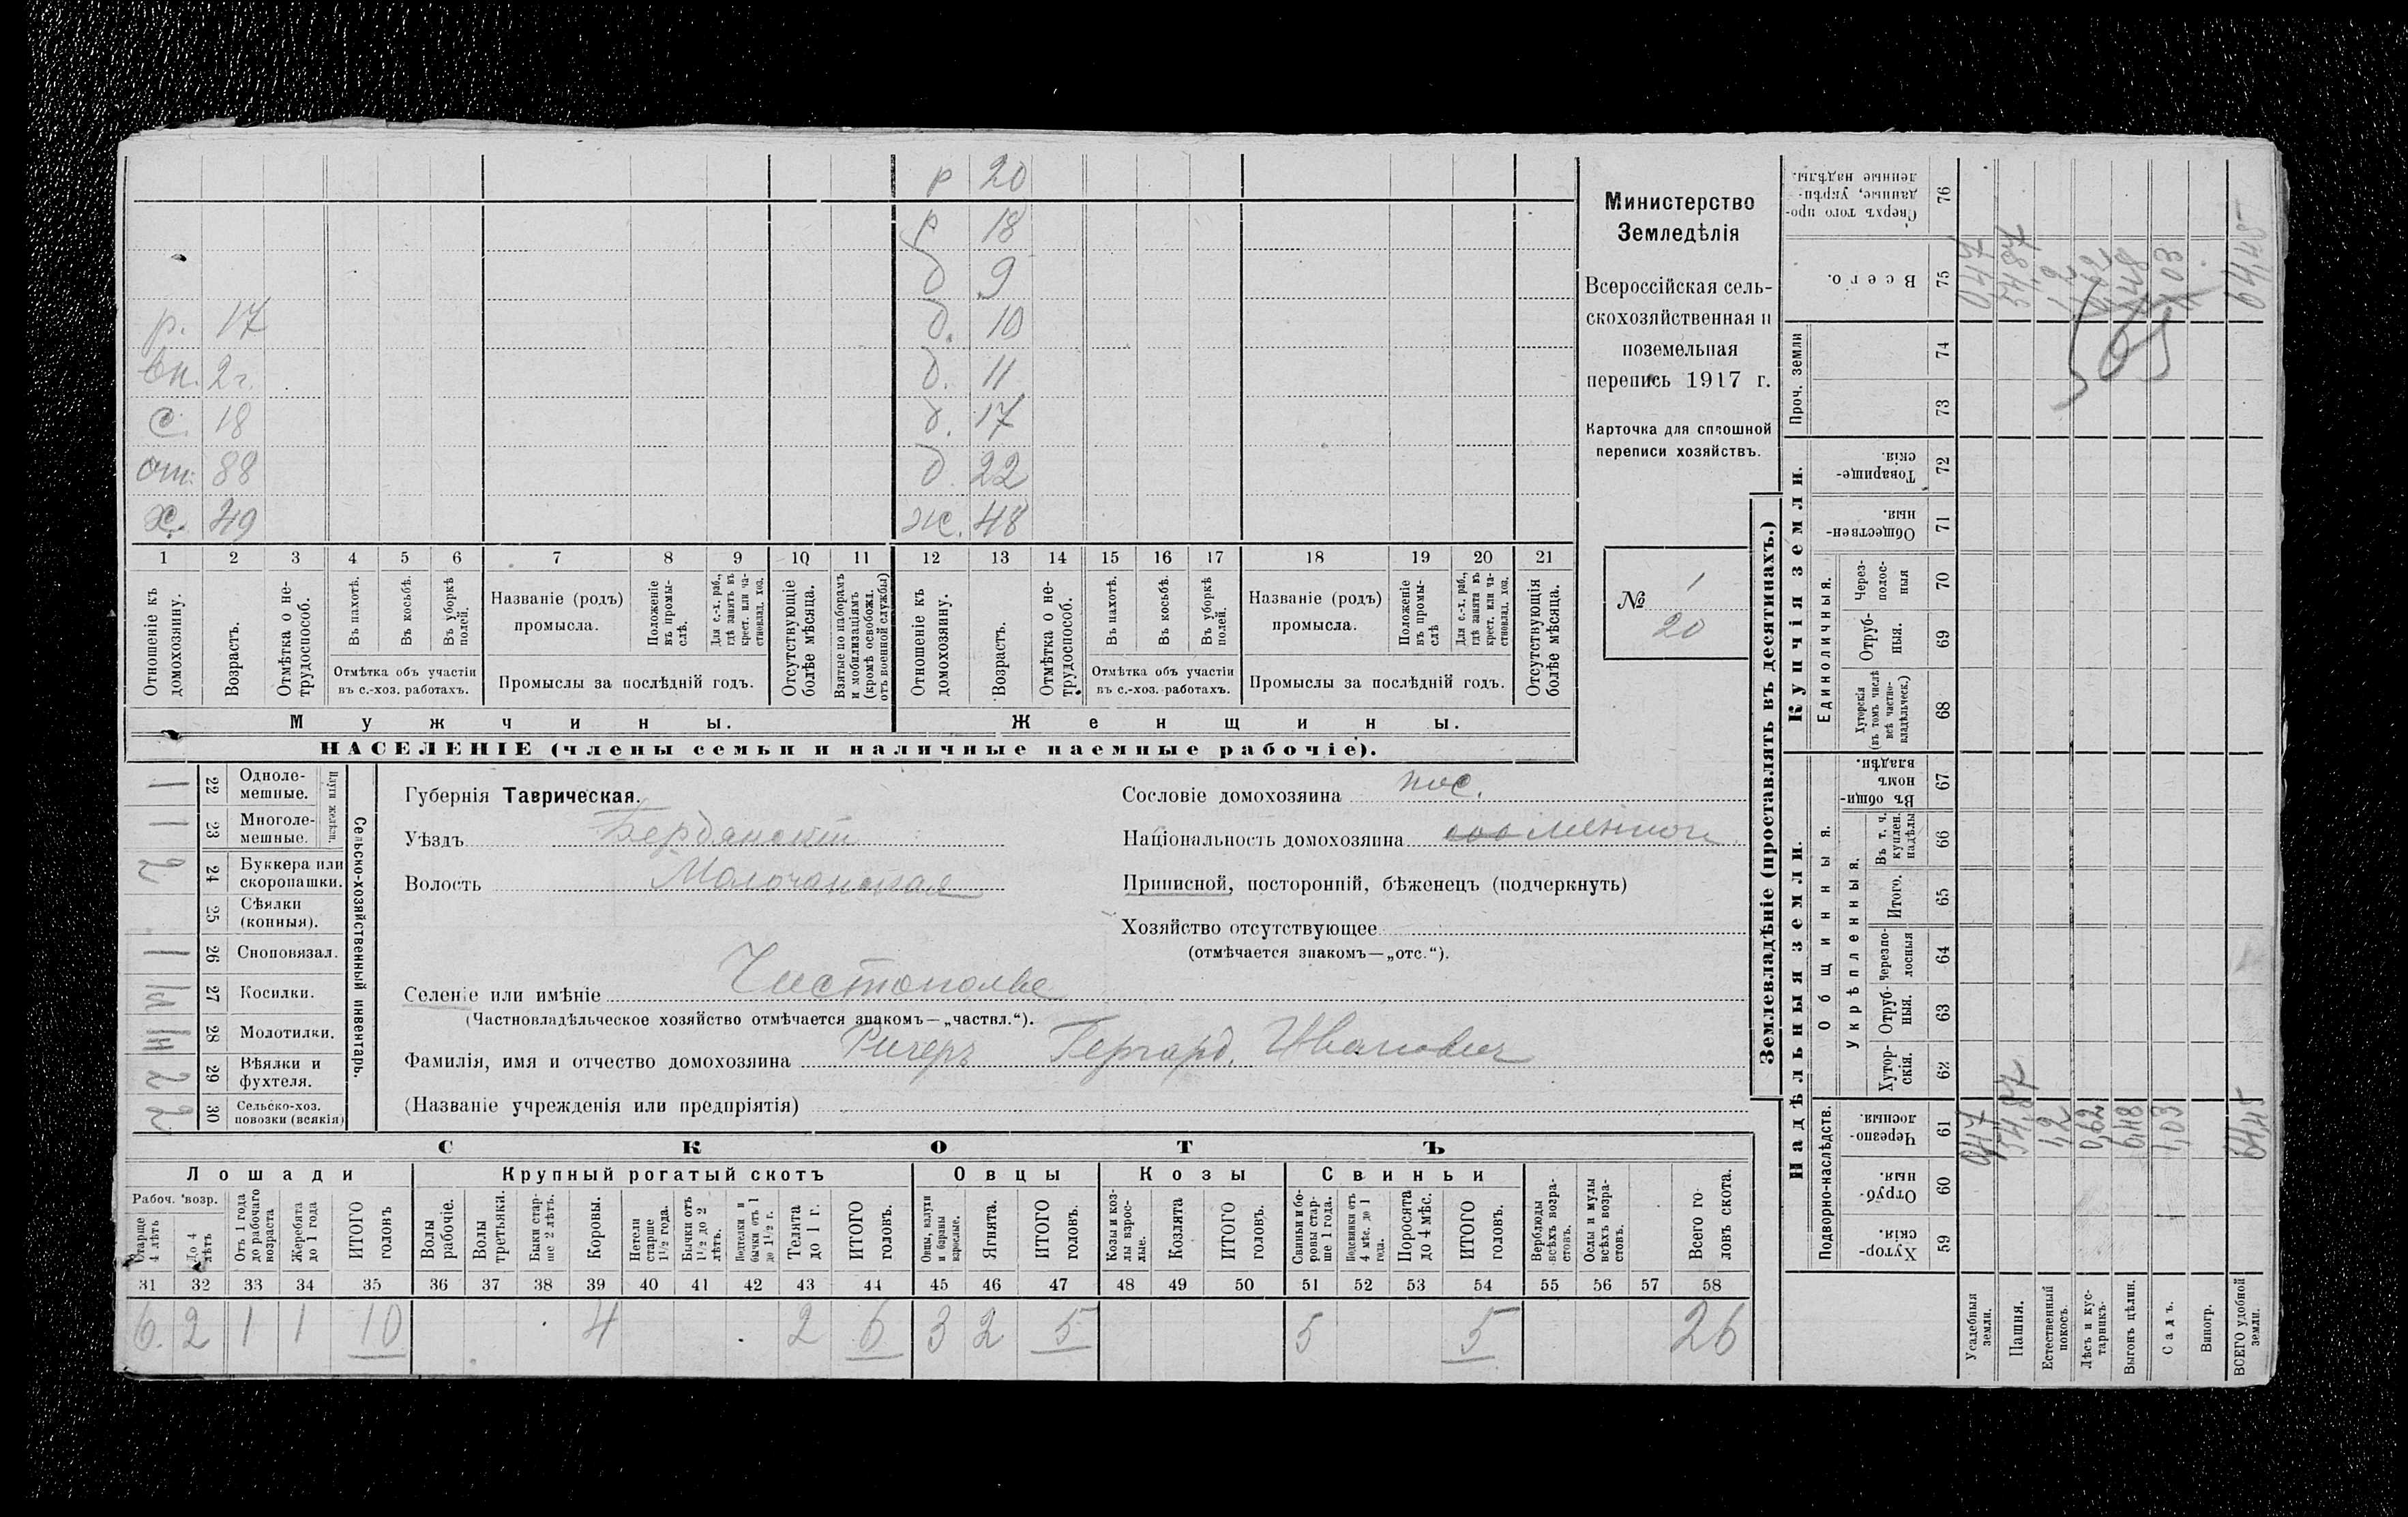 р 20
р 18
д 9
р. 17 д. 10
вн. 2 г. д. 11
с. 18 д. 17
от. 88 д. 22
х. 49 ж. 48
1 2 3 4 5 6 7 8 9 10 11 12 13 14 15 16 17 18 19 20 21
Отношеніе къ домохозяину.
Возрастъ.
Отмѣтка о не-трудоспособ.
Въ пахотѣ.
Въ косьбѣ.
Въ уборкѣ полей.
Отмѣтка объ участіи
въ с.-хоз. работахъ.
Названіе (родъ)
промысла.
Положеніе въ промы-слѣ.
Для с.-х. раб., гдѣ занятъ въ крест. или ча-стновлад. хоз.
Промыслы за послѣдній годъ.
Отсутствующіе болѣе мѣсяца.
Взятые по наборамъ и мобилизаціямъ (кромѣ освобожд. отъ военной службы)
Отношеніе къ домохозяину.
Возрастъ.
Отмѣтка о не-трудоспособ.
Въ пахотѣ.
Въ косьбѣ.
Въ уборкѣ полей.
Отмѣтка объ участіи
въ с.-хоз. работахъ.
Названіе (родъ)
промысла.
Положеніе въ промы-слѣ
Для с.-х. раб., гдѣ занята въ крест. или ча-стновлад. хоз.
Промыслы за послѣдній годъ.
Отсутствующія болѣе мѣсяца.
Мужчины.
Женщины.
НАСЕЛЕНІЕ (члены семьи и наличные наемные рабочіе).
Министерство
Земледѣлія
Всероссійская сель-
скохозяйственная и
поземельная
перепись 1917 г.
Карточка для сплошной
переписи хозяйствъ.
№ 1
20
Сельско-хозяйственный инвентарь.
Плуги желѣзн.
1 22 Одноле-мешные.
1 23 Многоле-мешные.
2 24 Буккера или скоропашки.
25 Сѣялки (конныя).
1 26 Сноповязал.
27 Косилки.
28 Молотилки.
2 29 Вѣялки и фухтеля.
2 30 Сельско-хоз. повозки (всякія)
Губернія Таврическая.
Уѣздъ Бердянскій
Волость Молочанская
Селеніе или имѣніе Чистополье
(Частновладѣльческое хозяйство отмѣчается знакомъ—„частвл.“).
Фамилія, имя и отчество домохозяина Ричертъ Гергард. Иванович
(Названіе учрежденія или предпріятія)
Сословіе домохозяина пос.
Національность домохозяина менног
Приписной, посторонній, бѣженец (подчеркнуть)
Хозяйство отсутствующее
(отмѣчается знакомъ—„отс.“).
СКОТЪ
Лошади
Крупный рогатый скотъ
Овцы
Козы
Свиньи
Рабоч. возр.
Старше 4 лѣтъ
До 4 лѣтъ
Отъ 1 года до рабочаго возраста
Жеребята до 1 года
ИТОГО головъ
Волы рабочіе.
Волы третьяки.
Быки стар-ше 2 лѣтъ.
Коровы.
Нетели старше 1½ года.
Бычки отъ 1½ до 2 лѣтъ.
Подтелки и бычки отъ 1 до 1½ г.
Телята до 1 г.
ИТОГО головъ.
Овцы, валухи и бараны взрослые.
Ягнята.
ИТОГО головъ.
Козы и коз-лы взрос-лые.
Козлята
ИТОГО головъ.
Свиньи и бо-ровы стар-ше 1 года.
Подсвинки отъ 4 мѣс. до 1 года.
Поросята до 4 мѣс.
ИТОГО головъ.
Верблюды всѣхъ возра-стовъ.
Ослы и мулы всѣхъ возра-стовъ.
Всего го-ловъ скота.
31 32 33 34 35 36 37 38 39 40 41 42 43 44 45 46 47 48 49 50 51 52 53 54 55 56 57 58
6. 2 1 1 10 4 2 6 3 2 5 5 5 26
Землевладѣніе (проставлять въ десятинахъ.)
Надѣльныя земли.
Купчія земли.
Проч. земли
Подворно-наслѣдств.
Общинныя.
Укрѣпленныя.
Единоличныя.
Сверхъ того про-данные, укрѣп-ленные надѣлы. 76
Всего. 75
74
73
Товарище-скія. 72
Обществен-ныя. 71
Через-полос-ныя 70
Отруб-ныя. 69
Хуторскія (въ томъ числѣ всѣ частно-владѣльческ.) 68
Въ общи-номъ владѣн. 67
Въ т. ч. куплен. надѣлы 66
Итого. 65
Черезпо-лосныя 64
Отруб-ныя. 63
Хутор-скія. 62
Черезпо-лосныя. 61
Отруб-ныя. 60
Хутор-скія. 59
Усадебныя земли. 0,47
Пашня. 54,87
Естественный покосъ. 1,2
Лѣсъ и кус-тарникъ. 0,62
Выгонъ цѣлин. 6,48
Садъ. 1,03
Виногр.
ВСЕГО удобной земли. 64,45 64,45